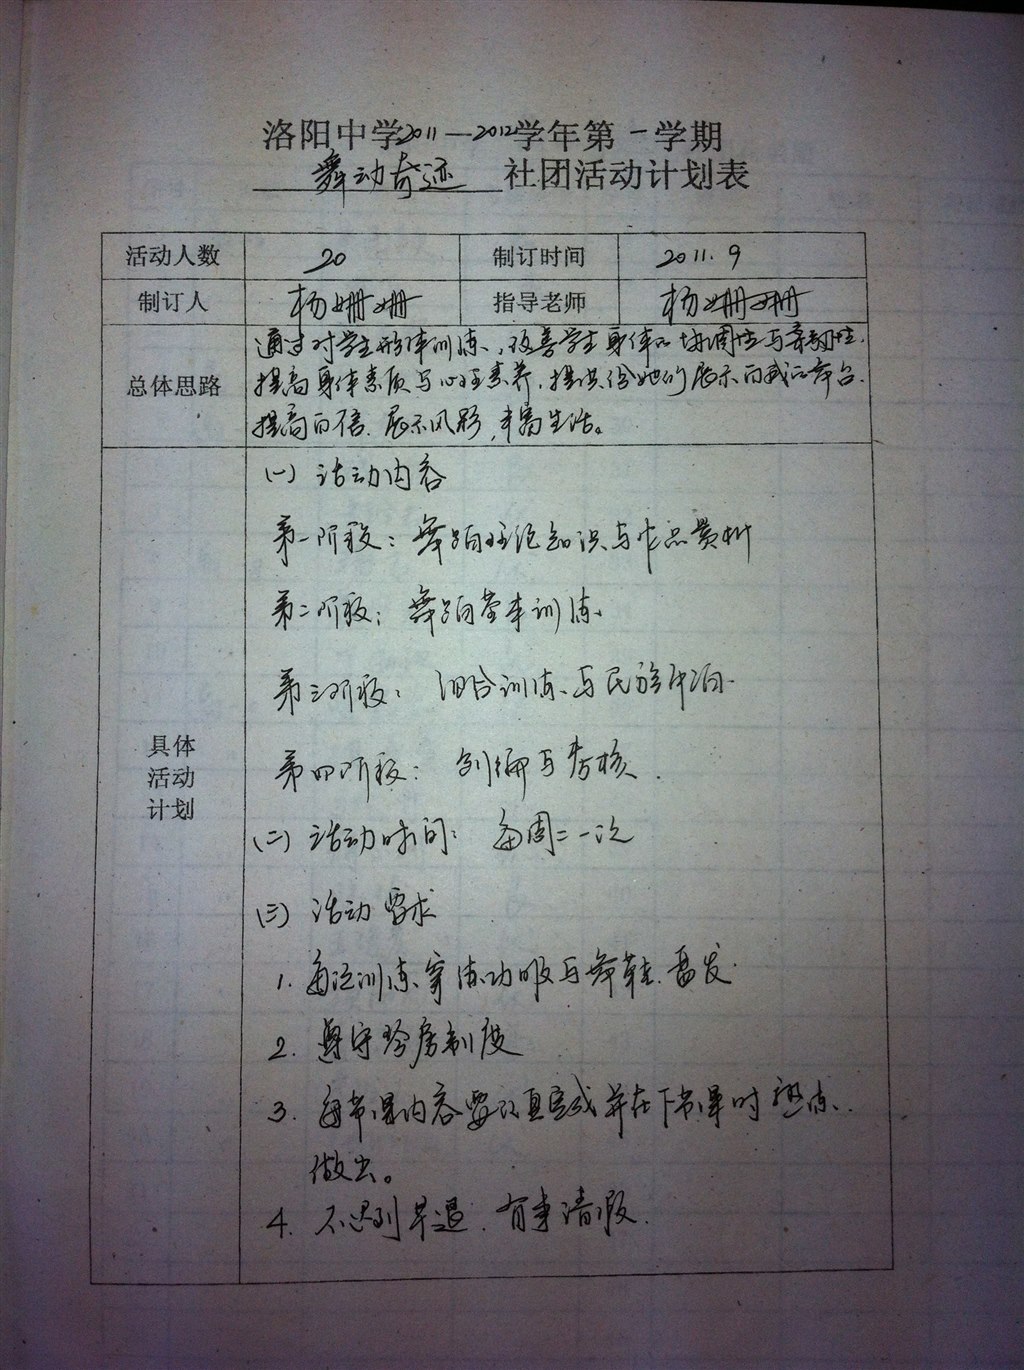 洛阳中学2011—2012学年第一学期
舞动奇迹 社团活动计划表
活动人数 20 制订时间 2011.9
制订人 杨姗姗 指导老师 杨姗姗
总体思路
通过对学生形体训练,改善学生身体的协调性与柔韧性.
提高身体素质与心理素养,提供给她们展示自我的舞台.
提高自信.展示风彩,丰富生活。
具体
活动
计划
(一) 活动内容
第一阶段:舞蹈理论知识与作品赏析
第二阶段:舞蹈基本训练.
第三阶段:组合训练与民族
第四阶段:创编与考核.
(二) 活动时间: 每周二一次
(三) 活动要求
1. 每次训练穿练功服与舞鞋.盘发.
2. 遵守琴房制度
3. 每节课内容要认真完成并在下节课时熟练.
做出。
4. 不迟到早退.有事请假.